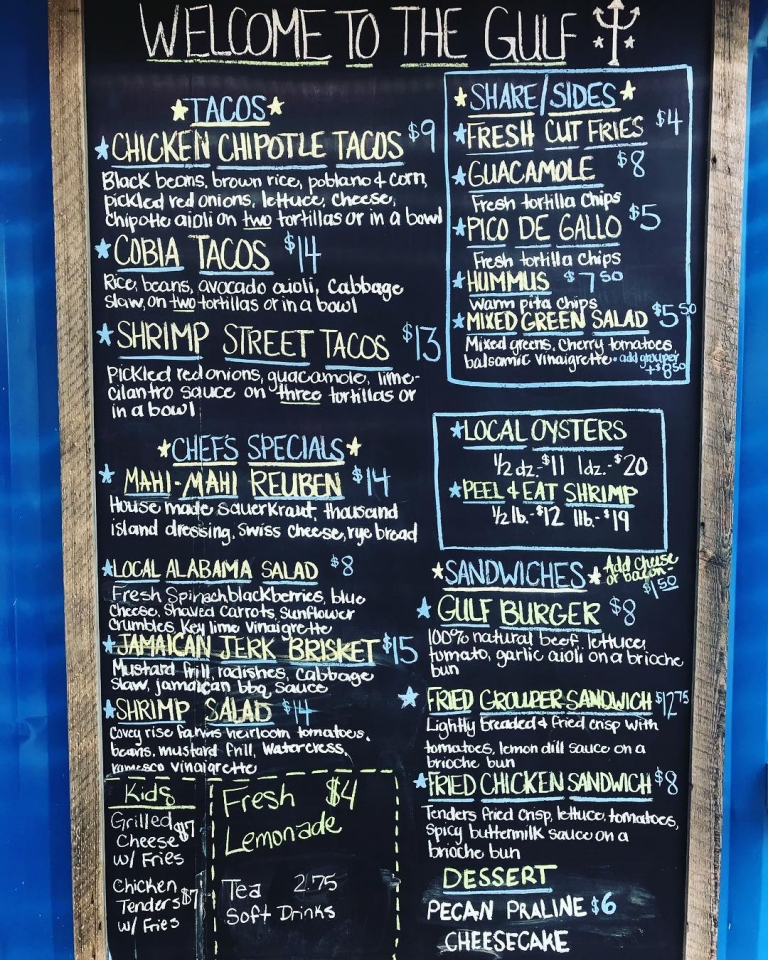 WELCOME TO THE GULF
TACOS
CHICKEN CHIPOTLE TACOS $9
Black beans, brown rice, poblano & corn,
pickled red onions, lettuce, cheese,
chipotle aioli on two tortillas or in a bowl
COBIA TACOS $14
Rice, beans, avocado aioli, Cabbage
slaw, on two tortillas or in a bowl
SHRIMP STREET TACOS $13
Pickled red onions, guacamole, lime-
cilantro sauce on three tortillas or
in a bowl
CHEF'S SPECIALS
MAHI-MAHI REUBEN $14
House made sauerkraut, thousand
island dressing, Swiss cheese, rye bread
LOCAL ALABAMA SALAD $8
Fresh Spinach, blackberries, blue
Cheese, Shaved Carrots, Sunflower
Crumbles, Key lime Vinaigrette
JAMAICAN JERK BRISKET $15
Mustard frill, radishes, Cabbage
Slaw, jamaican bbq sauce
SHRIMP SALAD $14
Covey rise farms heirloom tomatoes,
beans, mustard frill, watercress,
romesco vinaigrette
Kids
Grilled $7
Cheese
w/ Fries
Chicken
Tenders $7
w/ Fries
Fresh $4
Lemonade
Tea 2.75
Soft Drinks
SHARE/SIDES
FRESH CUT FRIES $4
GUACAMOLE $8
Fresh tortilla chips
PICO DE GALLO $5
Fresh tortilla chips
HUMMUS $7 50
Warm pita chips
MIXED GREEN SALAD $5 50
Mixed greens, Cherry tomatoes,
balsamic vinaigrette • add grouper
+$8 50
LOCAL OYSTERS
1/2 dz.-$11 1dz.-$20
PEEL & EAT SHRIMP
1/2 lb.-$12 1lb.-$19
SANDWICHES
Add cheese
or bacon
$1 50
GULF BURGER $8
100% natural beef, lettuce,
tomato, garlic aioli on a brioche
bun
FRIED GROUPER SANDWICH $12 75
Lightly breaded & fried crisp with
tomatoes, lemon dill sauce on a
brioche bun
FRIED CHICKEN SANDWICH $8
Tenders fried crisp, lettuce, tomatoes,
spicy buttermilk sauce on a
brioche bun
DESSERT
PECAN PRALINE $6
CHEESECAKE